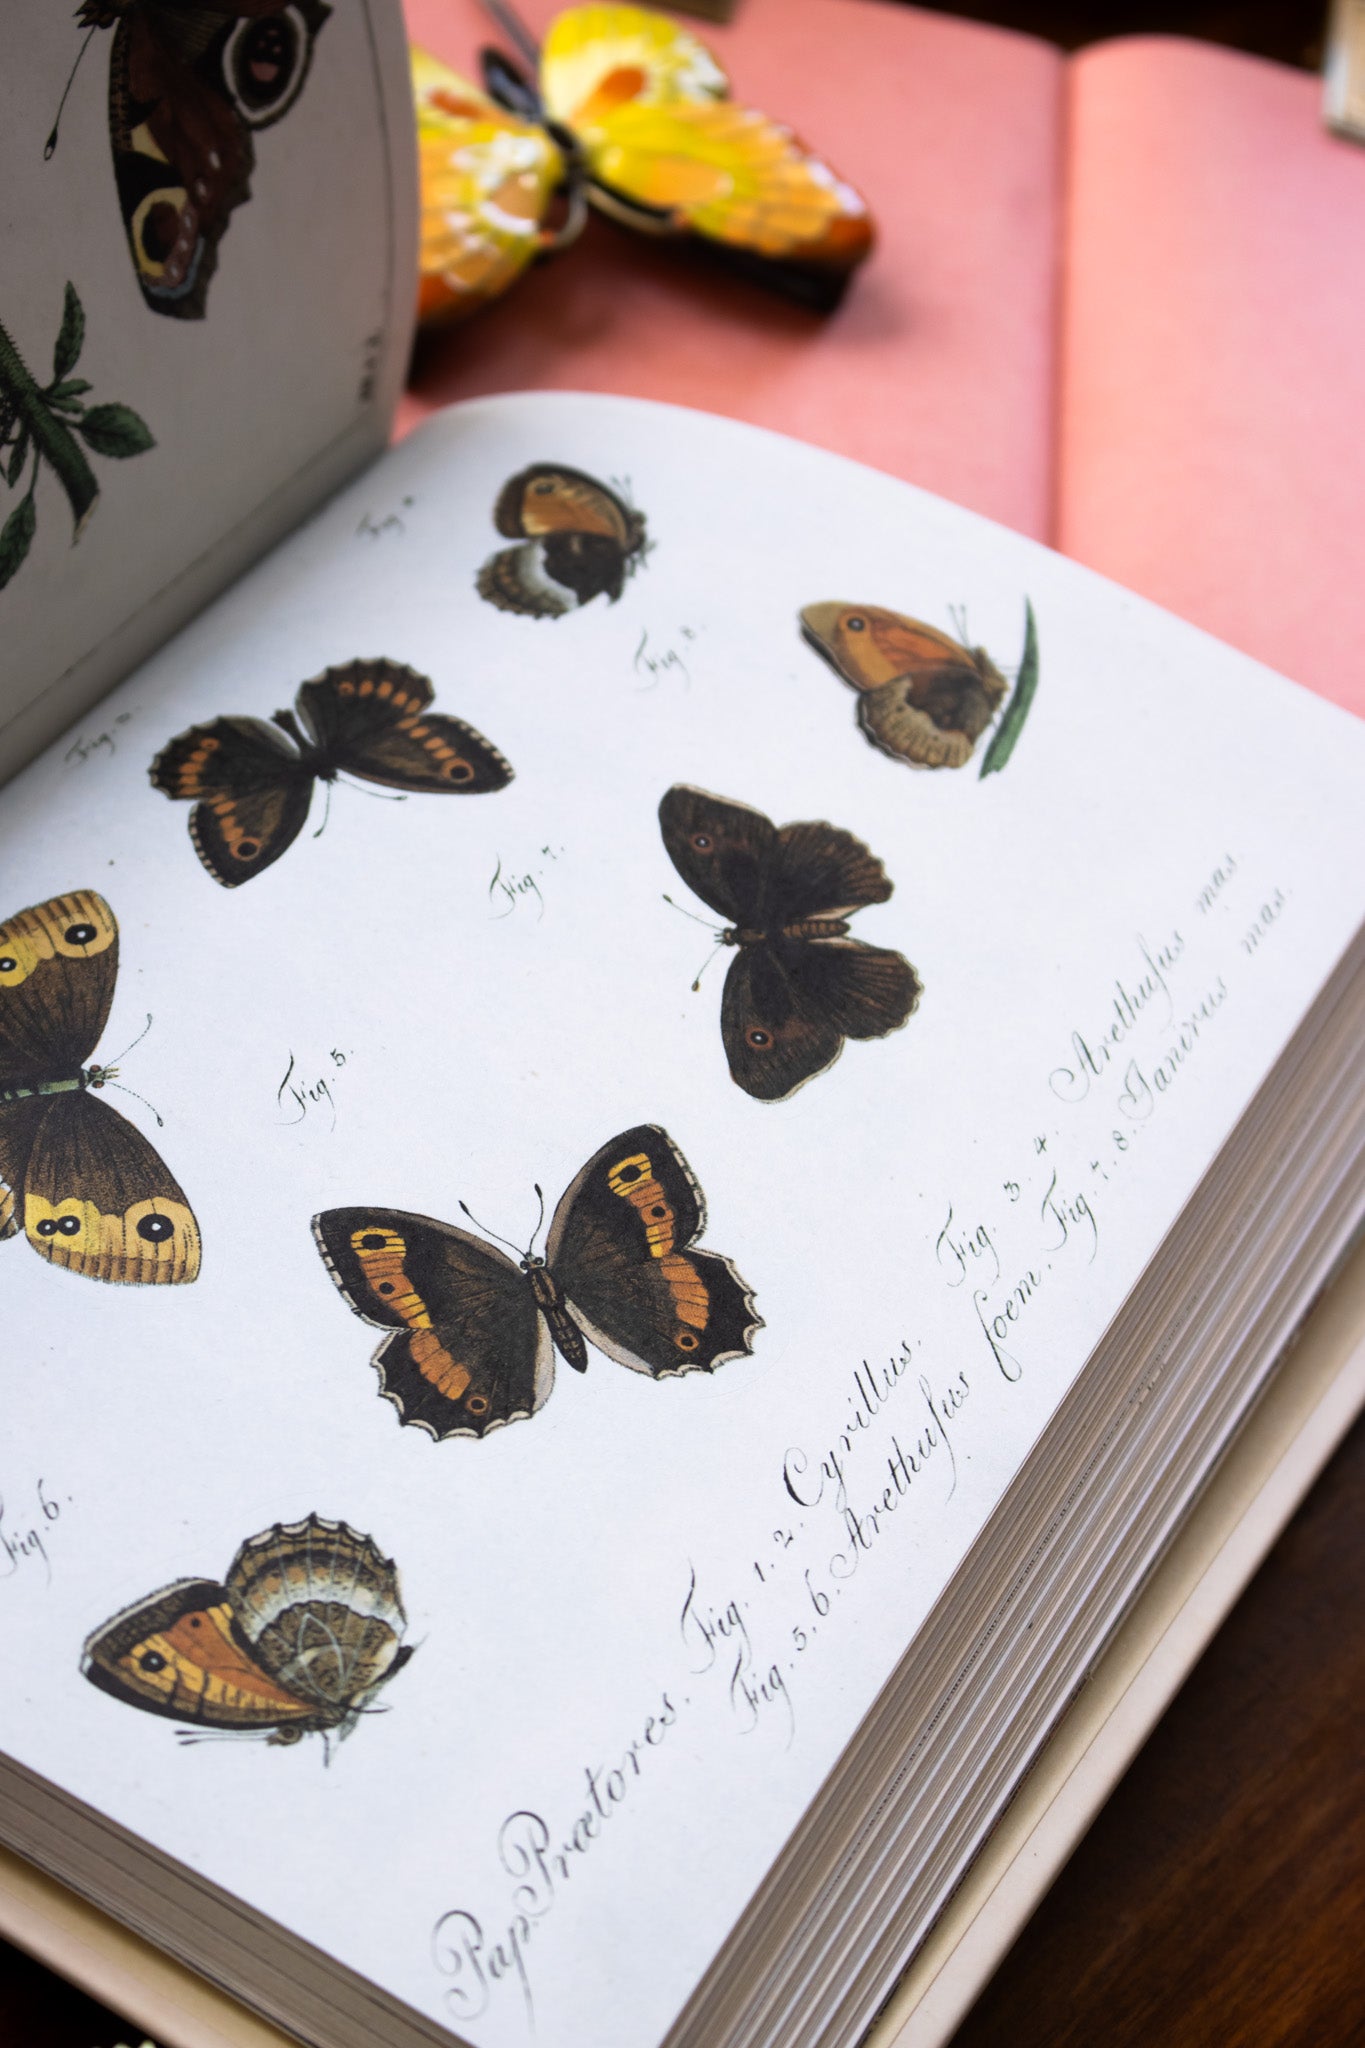 Fig. 8.
Fig. 7.
Fig. 5.
Fig. 6.
Pap. Prætores. Fig. 1. 2. Cyrillus. Fig. 3. 4. Arethuſus mas.
Fig. 5. 6. Arethuſus foem. Fig. 7. 8. Janirus mas.